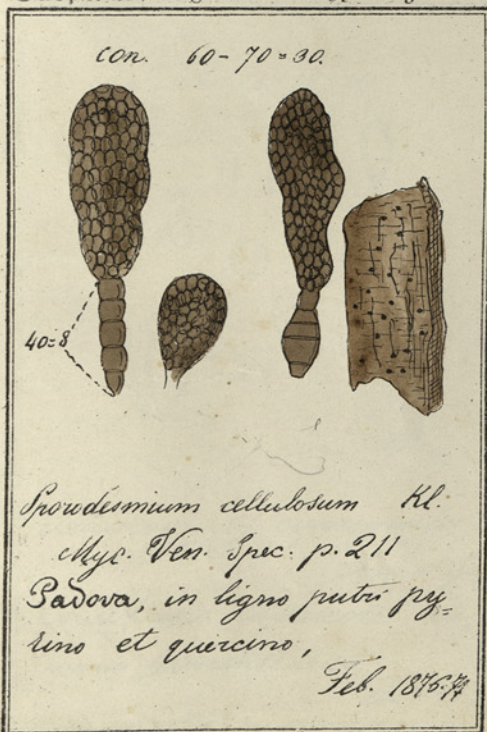 con. 60-70=30.
40=8
Sporodesmium cellulosum Kl.
Myc. Ven. Spec. p. 211
Padova, in ligno putri py=
rino et quercino,
Feb. 1875.